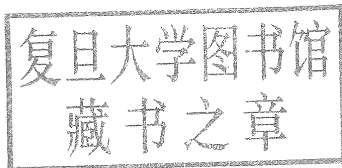 复旦大学图书馆
藏书之章